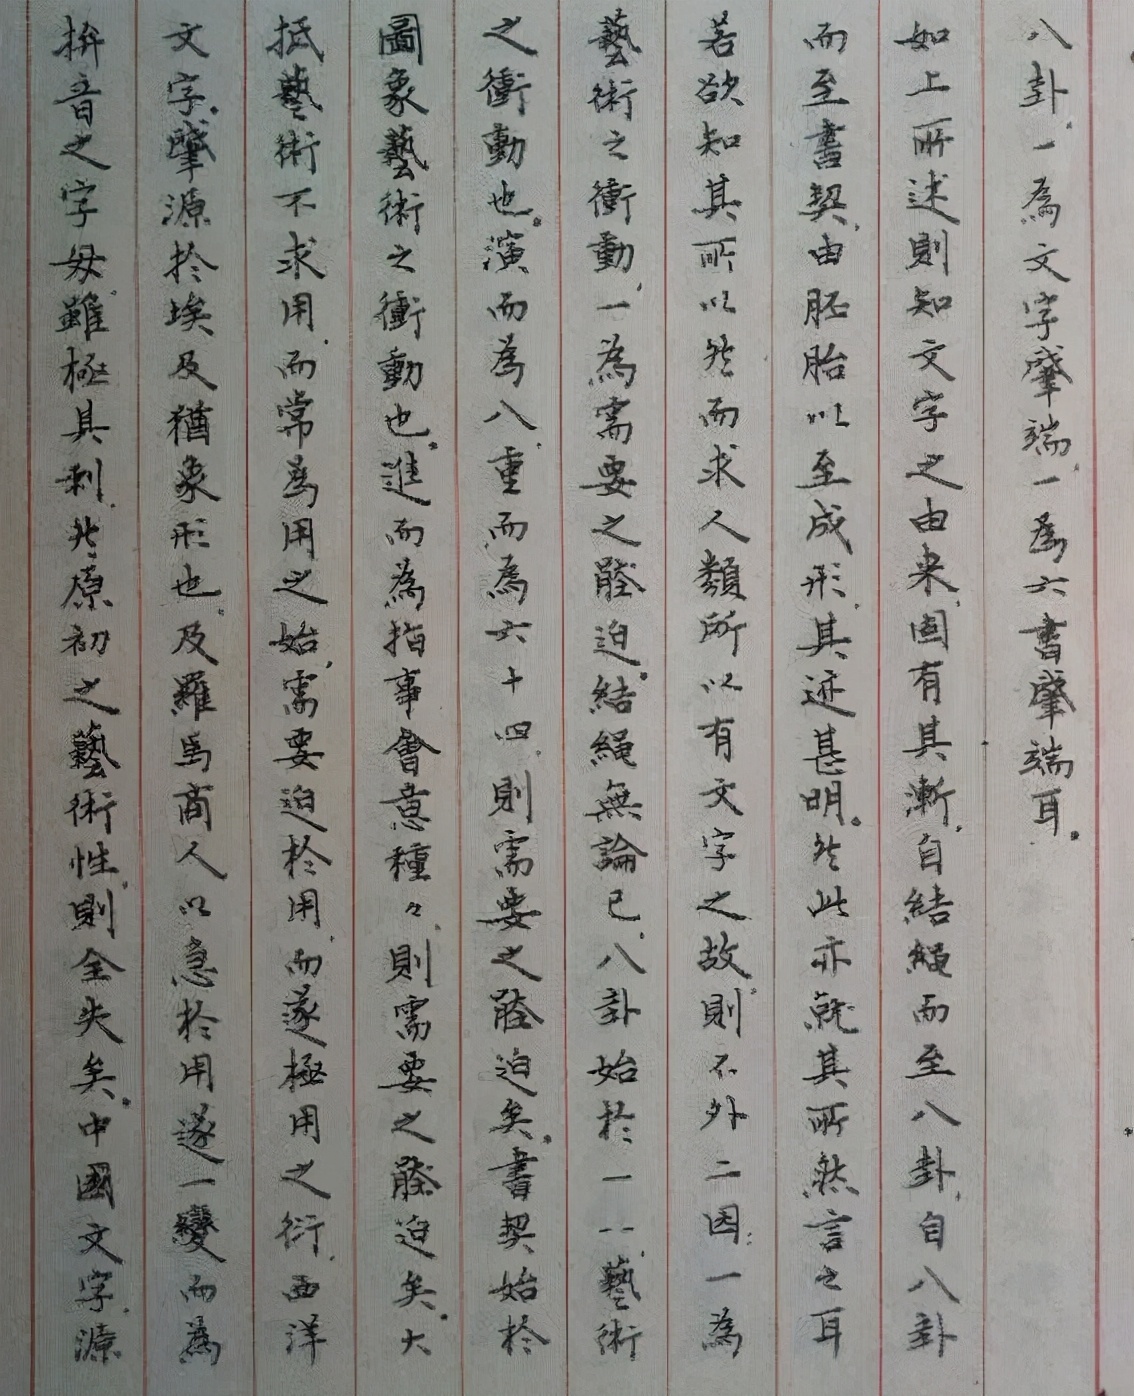 八卦、一為文字肇端、一為六書肇端耳。
如上所述則知文字之由来、固有其漸、自結繩而至八卦、自八卦
而至書契、由胚胎以至成形、其迹甚明。然此亦就其所然言之耳
若欲知其所以然而求人類所以有文字之故則不外二因：一為
藝術之衝動、一為需要之髊迫。結繩無論已、八卦始於一--、藝術
之衝動也。演而為八、重而為六十四、則需要之髊迫矣。書契始於
圖象藝術之衝動也。進而為指事會意種々、則需要之髊迫矣。大
抵藝術不求用、而常為用之始、需要迫於用、而遂極用之衍、西洋
文字。肇源於埃及猶象形也、及羅馬商人以急於用遂一變而為
拚音之字母、雖極具利、然原初之藝術性、則全失矣。中國文字、源